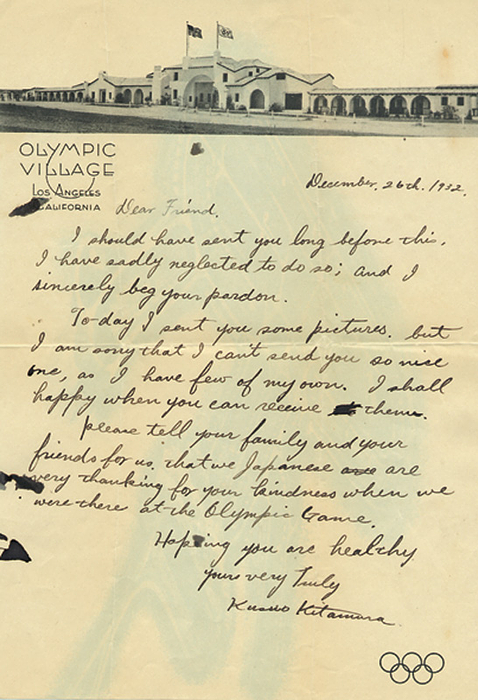 OLYMPIC
VILLAGE
LOS ANGELES
CALIFORNIA
December, 26th. 1932.
Dear Friend.
I should have sent you long before this.
I have sadly neglected to do so; and I
sincerely beg your pardon.
To-day I sent you some pictures. but
I am sorry that I can't send you so nice
one, as I have few of my own. I shall
happy when you can receive them.
please tell your family and your
friends for us, that we Japanese are are
very thanking for your kindness when we
were there at the Olympic Game.
Hopeing you are healthy
yours very Truly
Kusuo Kitamura